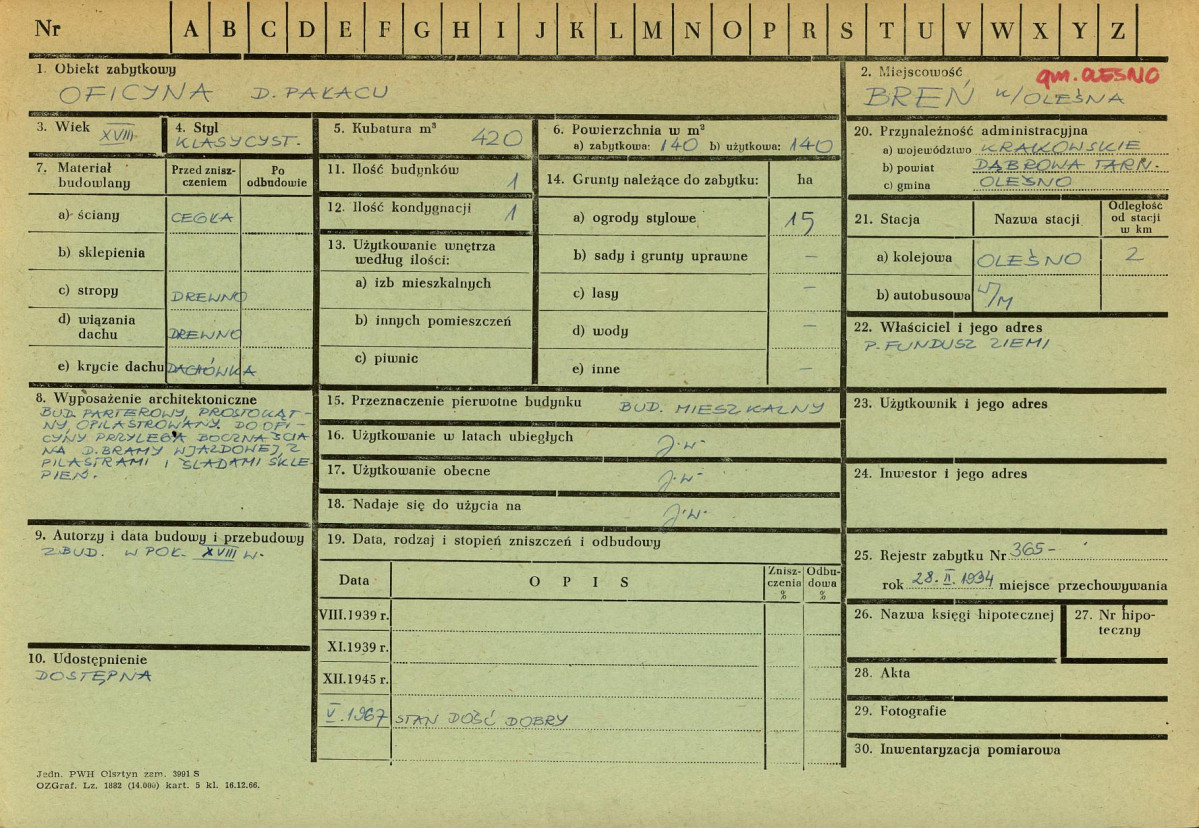 Nr A B C D E F G H I J K L M N O P R S T U V W X Y Z
1. Obiekt zabytkowy
OFICYNA D. PAŁACU
2. Miejscowość
gm. OLESNO
BREŃ k/OLEŚNA
3. Wiek XVIII
4. Styl
KLASYCYST.
5. Kubatura m³
420
6. Powierzchnia w m²
a) zabytkowa: 140 b) użytkowa: 140
7. Materiał budowlany
Przed znisz-
czeniem
Po
odbudowie
a) ściany CEGŁA
b) sklepienia
c) stropy DREWNO
d) wiązania
dachu DREWNO
e) krycie dachu DACHÓWKA
8. Wyposażenie architektoniczne
BUD. PARTEROWY, PROSTOKĄT-
NY, OPILASTROWANY. DO OFI-
CYNY PRZYLEGA BOCZNA ŚCIA
NA D. BRAMY WJAZDOWEJ, Z
PILASTRAMI I ŚLADAMI SKLE-
PIEŃ.
9. Autorzy i data budowy i przebudowy
ZBUD. W POŁ. XVIII W.
10. Udostępnienie
DOSTĘPNA
11. Ilość budynków
1
12. Ilość kondygnacji 1
13. Użytkowanie wnętrza
według ilości:
a) izb mieszkalnych
b) innych pomieszczeń
c) piwnic
14. Grunty należące do zabytku: ha
a) ogrody stylowe 15
b) sady i grunty uprawne –
c) lasy –
d) wody –
e) inne –
15. Przeznaczenie pierwotne budynku BUD. MIESZKALNY
16. Użytkowanie w latach ubiegłych J.w.
17. Użytkowanie obecne J.w.
18. Nadaje się do użycia na J.w.
19. Data, rodzaj i stopień zniszczeń i odbudowy
Data O P I S
Znisz-
czenia
%
Odbu-
dowa
%
VIII.1939 r.
XI.1939 r.
XII.1945 r.
V.1967 STAN DOŚĆ DOBRY
20. Przynależność administracyjna
a) województwo KRAKOWSKIE
b) powiat DĄBROWA TARN.
c) gmina OLESNO
21. Stacja Nazwa stacji
Odległość
od stacji
w km
a) kolejowa OLEŚNO 2
b) autobusowa W/M
22. Właściciel i jego adres
P. FUNDUSZ ZIEMI
23. Użytkownik i jego adres
24. Inwestor i jego adres
25. Rejestr zabytku Nr 365-
rok 28.II.1934 miejsce przechowywania
26. Nazwa księgi hipotecznej
27. Nr hipo-
teczny
28. Akta
29. Fotografie
30. Inwentaryzacja pomiarowa
Jedn. PWH Olsztyn zam. 3991 S
OZGraf. Lz. 1882 (14.000) kart. 5 kl. 16.12.66.